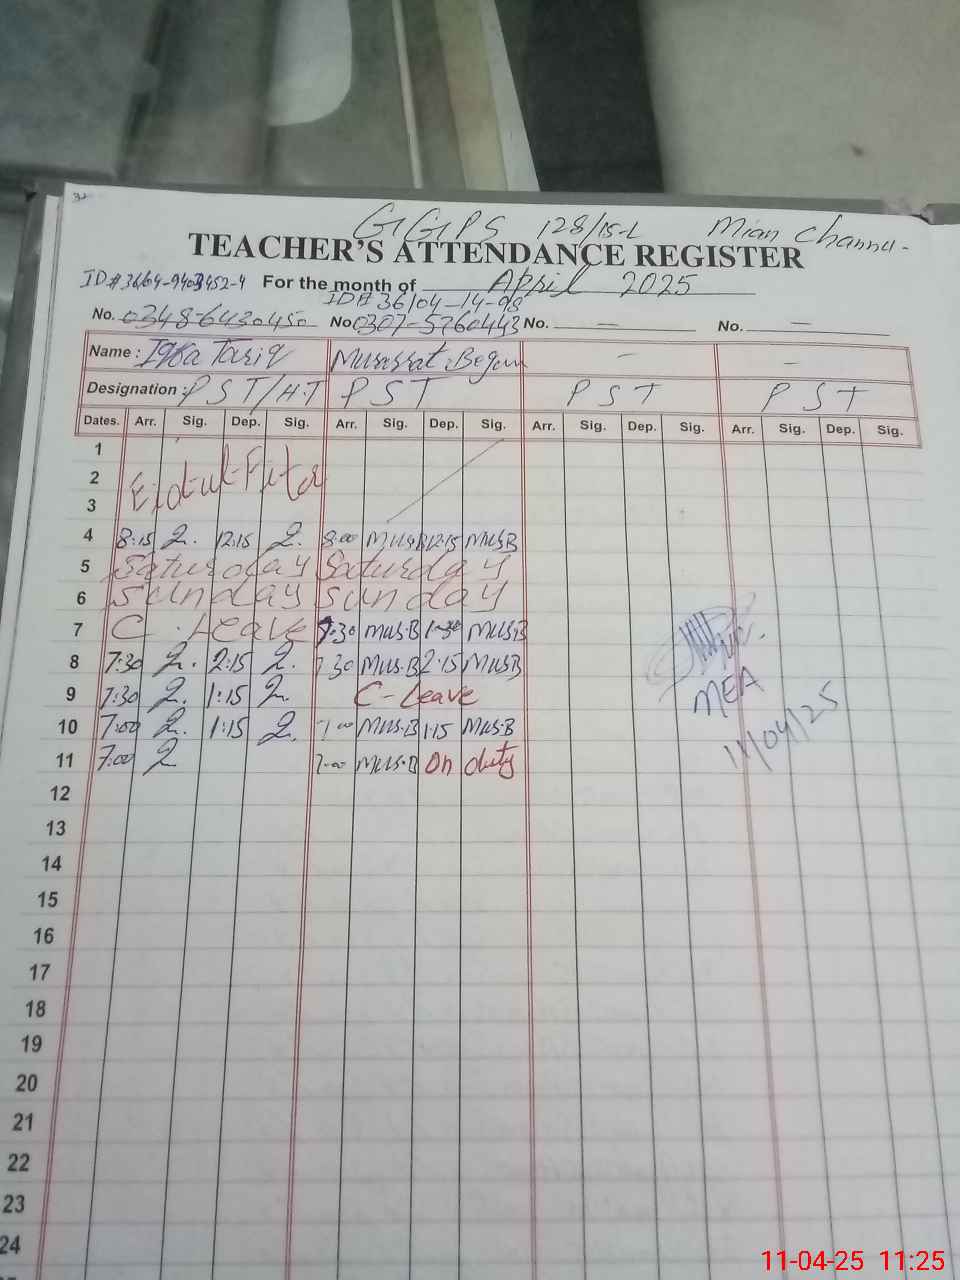 GGPS 128/15-L Mian Channu.
TEACHER'S ATTENDANCE REGISTER
For the month of April 2025
ID# 36104-14-98
No. 0348-6430450 No. 0307-5760443 No. — No. —
Name: Iqra Tariq Musarrat Begum — —
Designation: P S T/H.T P S T P S T P S T
Dates. Arr. Sig. Dep. Sig. Arr. Sig. Dep. Sig. Arr. Sig. Dep. Sig. Arr. Sig. Dep. Sig.
1
2 Eid-ul-Fitar
3
4 8:15 12:15 8:00 Mus.B 12:15 Mus.B
5 Saturday Saturday
6 Sunday Sunday
7 C. Leave 7:30 Mus.B 1:30 Mus.B
8 7:30 2:15 7:30 Mus.B 2:15 Mus.B
9 7:30 1:15 C-Leave
10 7:00 1:15 7:00 Mus.B 1:15 Mus.B
11 7:00 7:00 Mus.B On duty
MEA
11/04/25
12
13
14
15
16
17
18
19
20
21
22
23
24
11-04-25 11:25